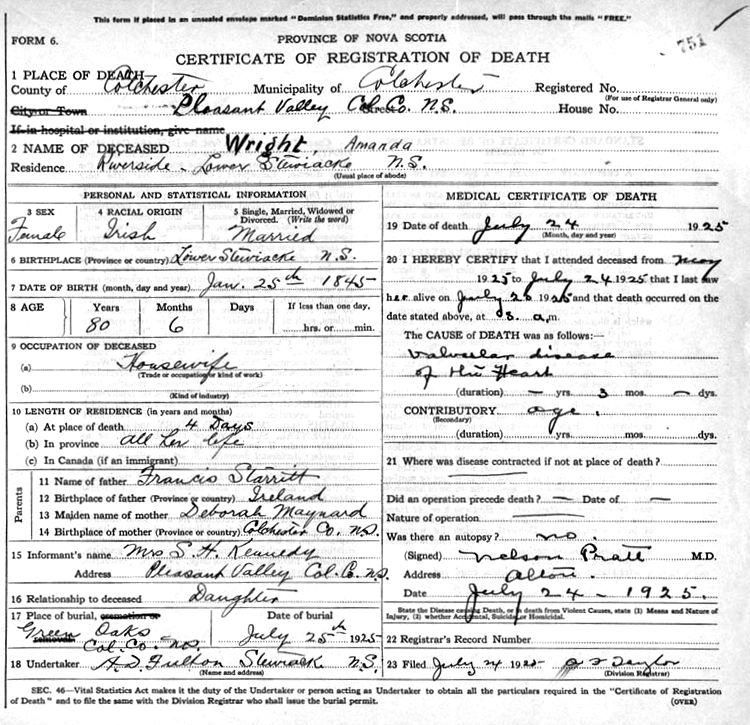 This form if placed in an unsealed envelope marked "Dominion Statistics Free," and properly addressed, will pass through the mails "FREE."
FORM 6.
PROVINCE OF NOVA SCOTIA
751
CERTIFICATE OF REGISTRATION OF DEATH
1 PLACE OF DEATH
County of Colchester Municipality of Colchester Registered No.
(For use of Registrar General only)
City or Town Pleasant Valley Street Col. Co. N.S. House No.
If in hospital or institution, give name
2 NAME OF DECEASED Wright, Amanda
Residence Riverside - Lower Stewiacke N.S.
(Usual place of abode)
PERSONAL AND STATISTICAL INFORMATION
3 SEX 4 RACIAL ORIGIN 5 Single, Married, Widowed or Divorced. (Write the word)
Female Irish Married
6 BIRTHPLACE (Province or country) Lower Stewiacke N.S.
7 DATE OF BIRTH (month, day and year) Jan. 25th 1845
8 AGE Years Months Days If less than one day,
80 6 hrs. or min.
9 OCCUPATION OF DECEASED
(a) Housewife
(Trade or occupation or kind of work)
(b)
(Kind of industry)
10 LENGTH OF RESIDENCE (in years and months)
(a) At place of death 4 Days
(b) In province all her life
(c) In Canada (if an immigrant)
Parents
11 Name of father Francis Starritt
12 Birthplace of father (Province or country) Ireland
13 Maiden name of mother Deborah Maynard
14 Birthplace of mother (Province or country) Colchester Co. N.S.
15 Informant's name Mrs S. H. Kennedy
Address Pleasant Valley Col. Co. N.S.
16 Relationship to deceased Daughter
17 Place of burial, cremation or removal Date of burial
Green Oaks Col. Co. N.S. July 25th 1925
18 Undertaker A. D. Fulton Stewiack N.S.
(Name and address)
MEDICAL CERTIFICATE OF DEATH
19 Date of death July 24 1925
(Month, day and year)
20 I HEREBY CERTIFY that I attended deceased from May
1925 to July 24 1925 that I last saw
her alive on July 20 1925 and that death occurred on
date stated above, at 3. a.m.
The CAUSE of DEATH was as follows:—
Valvular disease
of the Heart
(duration) — yrs. 3 mos. — dys.
CONTRIBUTORY age.
(Secondary)
(duration) yrs. mos. dys.
21 Where was disease contracted if not at place of death?
Did an operation precede death? — Date of —
Nature of operation
Was there an autopsy? no.
(Signed) Nelson Pratt M.D.
Address Alton.
Date July 24 - 1925.
State the Disease causing Death, or in death from Violent Causes, state (1) Means and Nature of
Injury, (2) whether Accidental, Suicidal or Homicidal.
22 Registrar's Record Number
23 Filed July 24 1925 Taylor
(Division Registrar)
SEC. 46—Vital Statistics Act makes it the duty of the Undertaker or person acting as Undertaker to obtain all the particulars required in the "Certificate of Registration
of Death" and to file the same with the Division Registrar who shall issue the burial permit. (OVER)